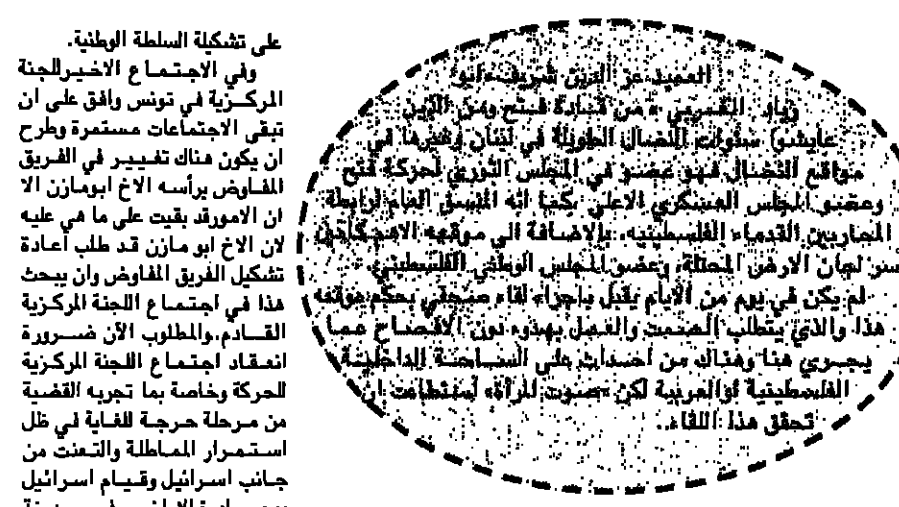 العميد عز الدين شريف «ابو
زياد المغربي» من قيادة فتح ومن الذين
عايشوا سنوات النضال الطويلة في لبنان وغيرها في
مواقع النضال فهو عضو في المجلس الثوري لحركة فتح
وعضو المجلس العسكري الاعلى كما انه المنسق العام لرابطة
المحاربين القدماء الفلسطينيه، بالاضافة الى موقعه
سر لجان الارض المحتلة، وعضو المجلس الوطني الفلسطيني
لم يكن في يوم من الأيام يقبل باجراء لقاء صحفي بحكم موقعه
هذا والذي يتطلب الصمت والعمل بهدوء دون الافصاح عما
يجري هنا وهناك من احداث على الساحة الداخلية
الفلسطينية او العربية لكن «صوت المرأة» استطاعت ان
تحقق هذا اللقاء.
على تشكيلة السلطة الوطنية.
وفي الاجتماع الاخير للجنة
المركزية في تونس وافق على ان
تبقى الاجتماعات مستمرة وطرح
ان يكون هناك تغيير في الفريق
المفاوض برأسه الاخ ابومازن الا
ان الامورقد بقيت على ما هي عليه
لان الاخ ابو مازن قد طلب اعادة
تشكيل الفريق المفاوض وان يبحث
هذا في اجتماع اللجنة المركزية
القادم.والمطلوب الآن ضرورة
انعقاد اجتماع اللجنة المركزية
للحركة وخاصة بما تجريه القضية
من مرحلة حرجة للغاية في ظل
استمرار المماطلة والتعنت من
جانب اسرائيل وقيام اسرائيل